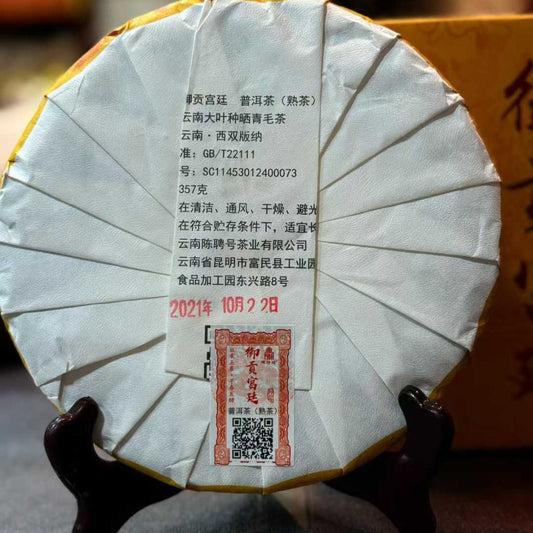 御贡宫廷 普洱茶（熟茶）
云南大叶种晒青毛茶
云南·西双版纳
准：GB/T22111
号：SC11453012400073
357克
在清洁、通风、干燥、避光
在符合贮存条件下，适宜长
云南陈聘号茶业有限公司
云南省昆明市富民县工业园
食品加工园东兴路8号
2021年 10月22日
御贡宫廷
普洱茶（熟茶）